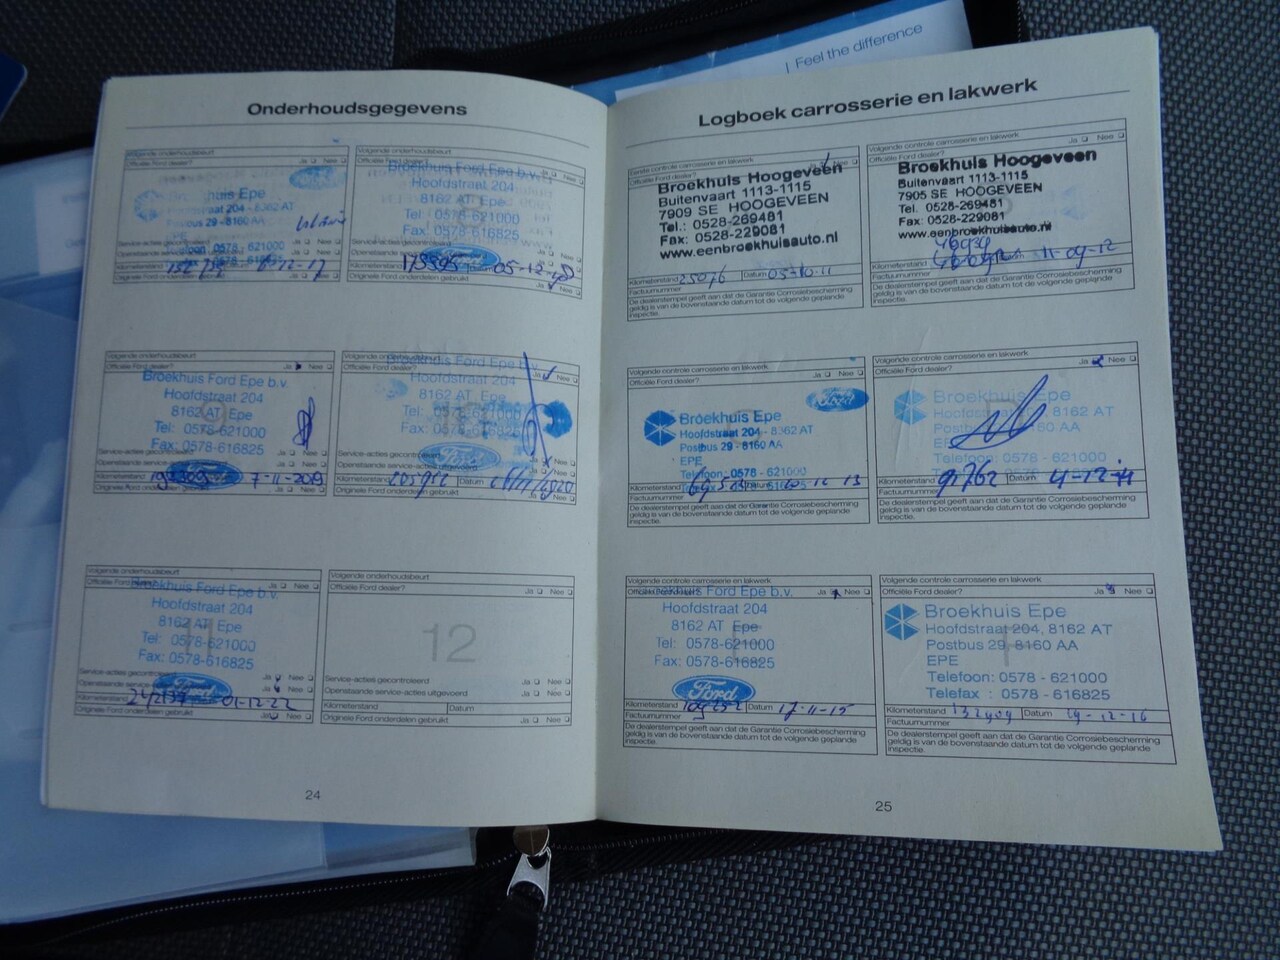 | Feel the difference
Onderhoudsgegevens
Volgende onderhoudsbeurt
Officiële Ford dealer? Ja Nee
huis Epe
raat 204 - 8162 AT
bus 29 - 8160 AA
EPE
foon 0578 - 621000
Service-acties gecontroleerd Ja Nee
Kilometerstand
Originele Ford onderdelen gebruikt Ja Nee
Officiële Ford dealer?
Broekhuis Ford Epe b.v.
Hoofdstraat 204
8162 AT Epe
Tel: 0578-621000
Fax: 0578-616825
Service-acties gecontroleerd
Openstaande service-
Ford
Kilometerstand 05-12-18
Originele Ford onderdelen gebruikt Ja Nee
Volgende onderhoudsbeurt
Officiële Ford dealer? Ja Nee
Broekhuis Ford Epe b.v.
Hoofdstraat 204
8162 AT Epe
Tel: 0578-621000
Fax: 0578-616825
Service-acties gecontroleerd
Openstaande service-
Ford
Kilometerstand 7-11-2019
Originele Ford onderdelen gebruikt
Volgende onderhoudsbeurt
Broekhuis Ford Epe b.v.
Officiële Ford dealer? Ja Nee
Hoofdstraat 204
8162 AT Epe
Tel: 0578-621000
Fax: 0578-616825
Service-acties gecontroleerd Ja Nee
Openstaande service-acties uitgevoerd Ja Nee
Ford
Kilometerstand 205912 Datum
Originele Ford onderdelen gebruikt Ja Nee
Volgende onderhoudsbeurt
Officiële Ford Ja Nee
Broekhuis Ford Epe b.v.
Hoofdstraat 204
8162 AT Epe
Tel: 0578-621000
Fax: 0578-616825
11
Service-acties gecontroleerd Ja Nee
Openstaande service- Ja Nee
Ford
Kilometerstand 242137 01-12-22
Originele Ford onderdelen gebruikt Ja Nee
Volgende onderhoudsbeurt
Officiële Ford dealer? Ja Nee
12
Service-acties gecontroleerd Ja Nee
Openstaande service-acties uitgevoerd Ja Nee
Kilometerstand Datum
Originele Ford onderdelen gebruikt Ja Nee
24
Logboek carrosserie en lakwerk
Eerste controle carrosserie en lakwerk
Officiële Ford dealer? Ja Nee
Broekhuis Hoogeveen
Buitenvaart 1113-1115
7909 SE HOOGEVEEN
Tel.: 0528-269481
Fax: 0528-229081
www.eenbroekhuisauto.nl
Kilometerstand 25076 Datum 05-10-11
Factuurnummer
De dealerstempel geeft aan dat de Garantie Corrosiebescherming
geldig is van de bovenstaande datum tot de volgende geplande
inspectie.
Volgende controle carrosserie en lakwerk
Officiële Ford dealer? Ja Nee
Broekhuis Hoogeveen
Buitenvaart 1113-1115
7905 SE HOOGEVEEN
Tel. 0528-269481
Fax: 0528-229081
www.eenbroekhuisauto.nl
Kilometerstand Datum 11-09-12
Factuurnummer
De dealerstempel geeft aan dat de Garantie Corrosiebescherming
geldig is van de bovenstaande datum tot de volgende geplande
inspectie.
Volgende controle carrosserie en lakwerk
Officiële Ford dealer? Ja Nee
Ford
Broekhuis Epe
Hoofdstraat 204 - 8162 AT
Postbus 29 - 8160 AA
EPE
Telefoon: 0578 - 621000
Kilometerstand Datum 20 12 13
Factuurnummer
De dealerstempel geeft aan dat de Garantie Corrosiebescherming
geldig is van de bovenstaande datum tot de volgende geplande
inspectie.
Volgende controle carrosserie en lakwerk
Officiële Ford dealer? Ja Nee
Broekhuis Epe
Hoofdstraat 204, 8162 AT
Postbus 29, 8160 AA
EPE
Telefoon: 0578 - 621000
Telefax : 0578 - 616825
Kilometerstand 91762 Datum
Factuurnummer
De dealerstempel geeft aan dat de Garantie Corrosiebescherming
geldig is van de bovenstaande datum tot de volgende geplande
inspectie.
Volgende controle carrosserie en lakwerk
Officiële Ford dealer? Ja Nee
Broekhuis Ford Epe b.v.
Hoofdstraat 204
8162 AT Epe
Tel: 0578-621000
Fax: 0578-616825
Ford
Kilometerstand 109252 Datum 17-11-15
Factuurnummer
De dealerstempel geeft aan dat de Garantie Corrosiebescherming
geldig is van de bovenstaande datum tot de volgende geplande
inspectie.
Volgende controle carrosserie en lakwerk
Officiële Ford dealer? Ja Nee
Broekhuis Epe
Hoofdstraat 204, 8162 AT
Postbus 29, 8160 AA
EPE
Telefoon: 0578 - 621000
Telefax : 0578 - 616825
Kilometerstand 132404 Datum 19-12-16
Factuurnummer
De dealerstempel geeft aan dat de Garantie Corrosiebescherming
geldig is van de bovenstaande datum tot de volgende geplande
inspectie.
25